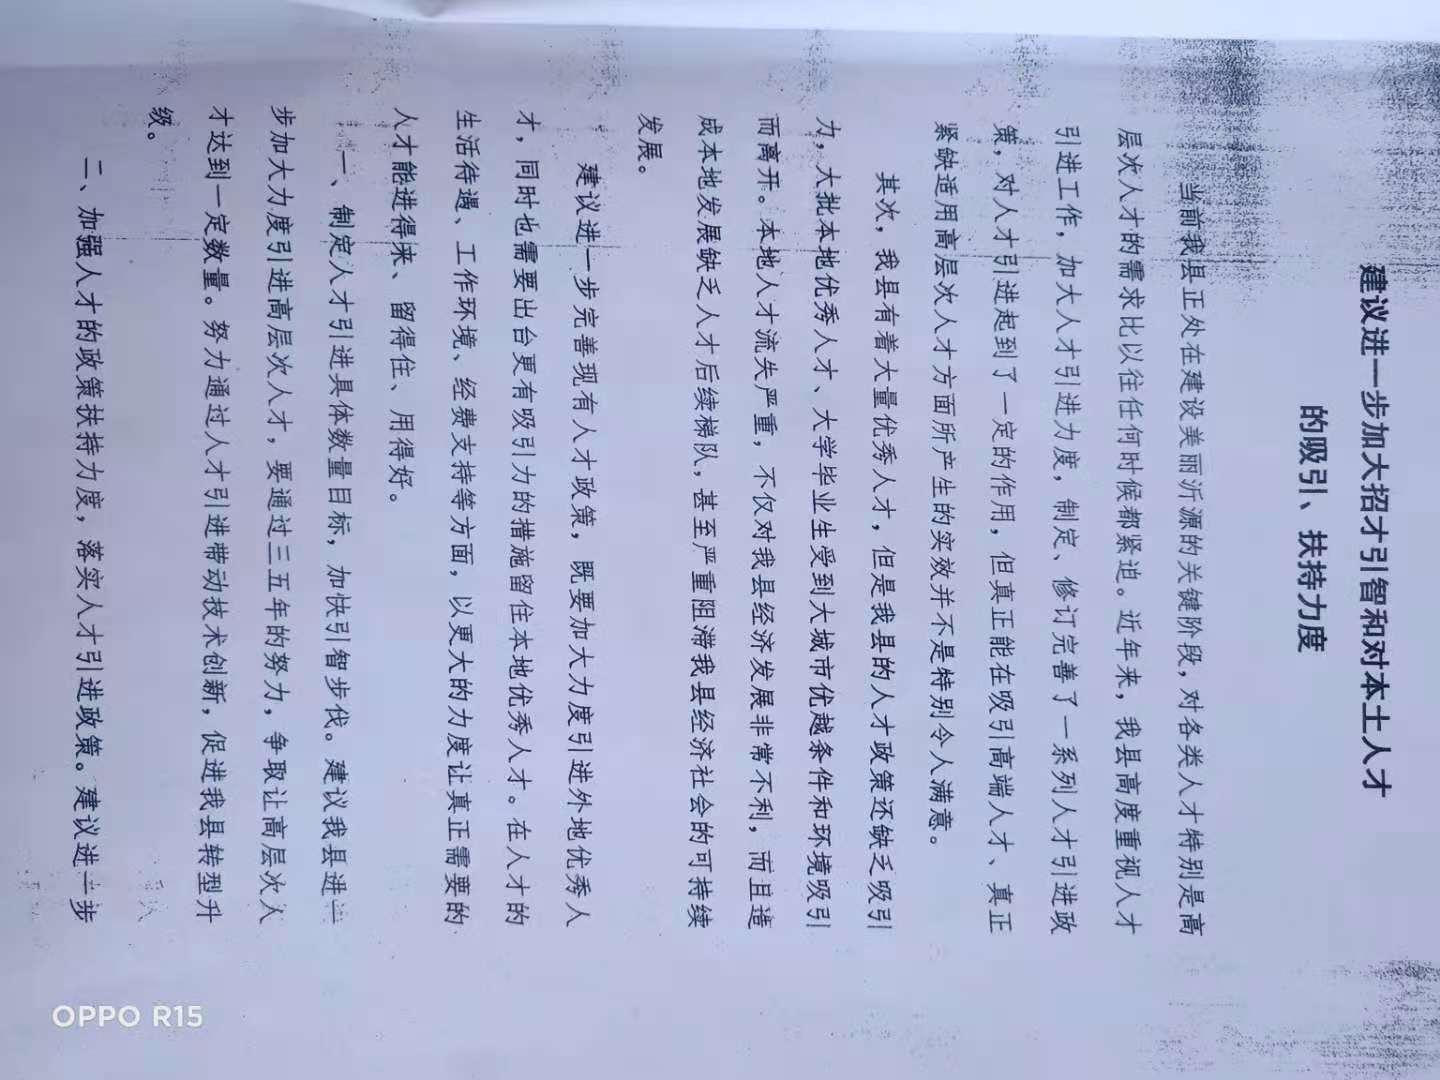 建议进一步加大招才引智和对本土人才
的吸引、扶持力度
当前我县正处在建设美丽沂源的关键阶段，对各类人才特别是高
层次人才的需求比以往任何时候都紧迫。近年来，我县高度重视人才
引进工作，加大人才引进力度，制定、修订完善了一系列人才引进政
策，对人才引进起到了一定的作用，但真正能在吸引高端人才、真正
紧缺适用高层次人才方面所产生的实效并不是特别令人满意。
其次，我县有着大量优秀人才，但是我县的人才政策还缺乏吸引
力，大批本地优秀人才、大学毕业生受到大城市优越条件和环境吸引
而离开。本地人才流失严重，不仅对我县经济发展非常不利，而且造
成本地发展缺乏人才后续梯队，甚至严重阻滞我县经济社会的可持续
发展。
建议进一步完善现有人才政策，既要加大力度引进外地优秀人
才，同时也需要出台更有吸引力的措施留住本地优秀人才。在人才的
生活待遇、工作环境、经费支持等方面，以更大的力度让真正需要的
人才能进得来、留得住、用得好。
一、制定人才引进具体数量目标，加快引智步伐。建议我县进一
步加大力度引进高层次人才，要通过三五年的努力，争取让高层次人
才达到一定数量。努力通过人才引进带动技术创新，促进我县转型升
级。
二、加强人才的政策扶持力度，落实人才引进政策。建议进一步
OPPO R15